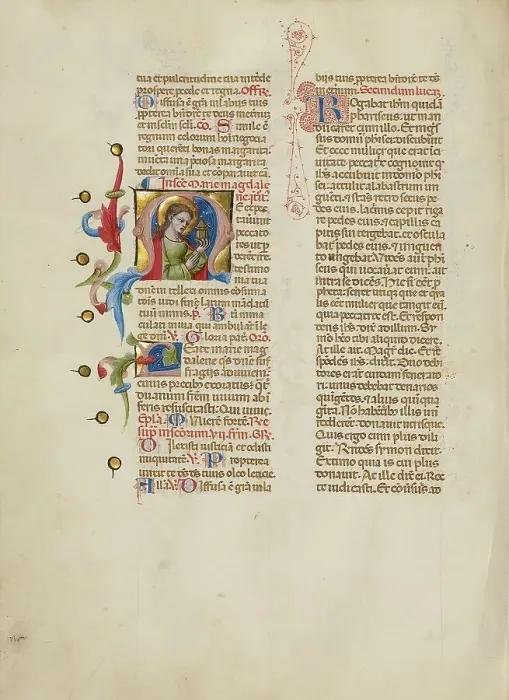 tua et pulcritudine tua intēde
prospere pcede et regna. Offr.
Diffusa ē grā in labiis tuis
propterea bn̄dix̄ te deus in etnū
et in sclm scli. co. Simile ē
regnum celorum hoi negocia
tori querēti bonas margaritas
inuēta una p̄ciosa margarita
dedit omnia sua et cōparauit eā.
In scē Marie magdale
ne
Me expec
tauerūt
peccato
res ut p
derēt me
testimo
nia tua
dn̄e in tellexi omnis cōsuma
tōis uidi finē latum mādatū
tuū nimis. p. Beati inma
culati in uia qui ambulāt ī le
ge dn̄i. V. Gloria pat. Oro.
Beate marie mag
dalene qs dn̄e suf
fragiis adiuuemur
cuius precibus exoratus q̄t
duanum frēm uiuum ab ī
feris resuscitasti. Qui uiuis.
Epla. Mulierē fortē. Re
Dilexisti iusticiā et odisti
iniquitatē. V. Propterea
unxit te ds ds tuus oleo leticie.
Alla. V. Diffusa ē grā in la
biis tuis ppterea bn̄dix̄ te ds
in eternum. Secundum lucā.
Rogabat ihm quidā
phariseus ut man
ducaret cum illo. Et īgres
sus domū pharisei discubuit
Et ecce mulier que erat ī ci
uitate peccatrix ut cognouit q̄
ihs accubuit in domo phari
sei attulit alabastrum un
guēti. et stans retro secus pe
des eius lacrimis cepit riga
re pedes eius et capillis ca
pitis sui tergebat et oscula
bat pedes eius et unguen
to ungebat. Uidēs aūt phari
seus qui uocauat eum ait
intra se dicēs. Hic si eēt p̄
pheta sciret utique que et qua
lis eēt mulier que tangit eū
quia peccatrix est. Et respon
dens ihs dixit ad illum. Sy
mon hēo tibi aliquid dicere.
At ille ait. Magr̄ dic. Duo debi
tores erāt cuidam fenerato
ri. unus debebat denarios
quīgētos et alius quīqua
gīta. Nō habētibus illis un
redderēt donauit utrisque.
Quis ergo eum plus dili
git. Rn̄dēs symon dixit.
Estimo quia is cui plus
donauit. At ille dixit ei. Rec
te iudicasti. Et cōuersus ad